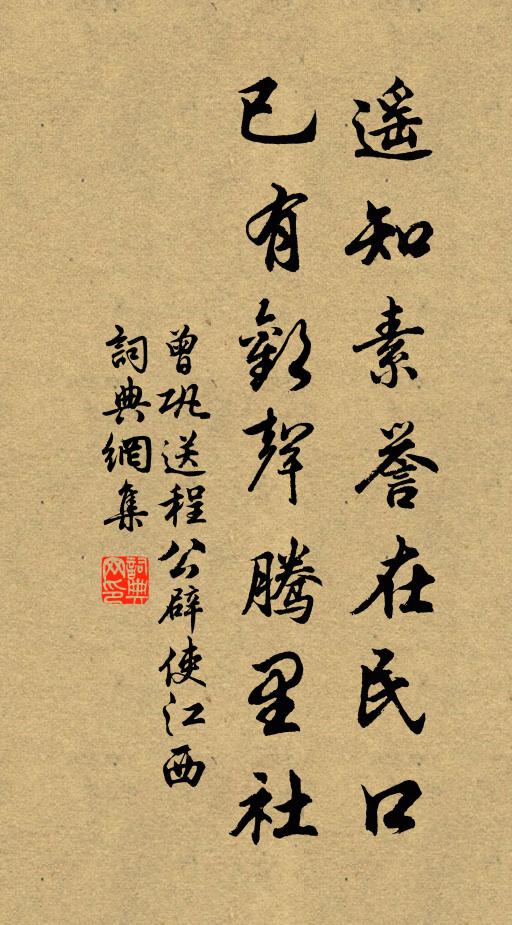 遥知素譽在民口
已有歡聲騰里社
曾巩送程公辟使江西
詞典網集
詞典网印